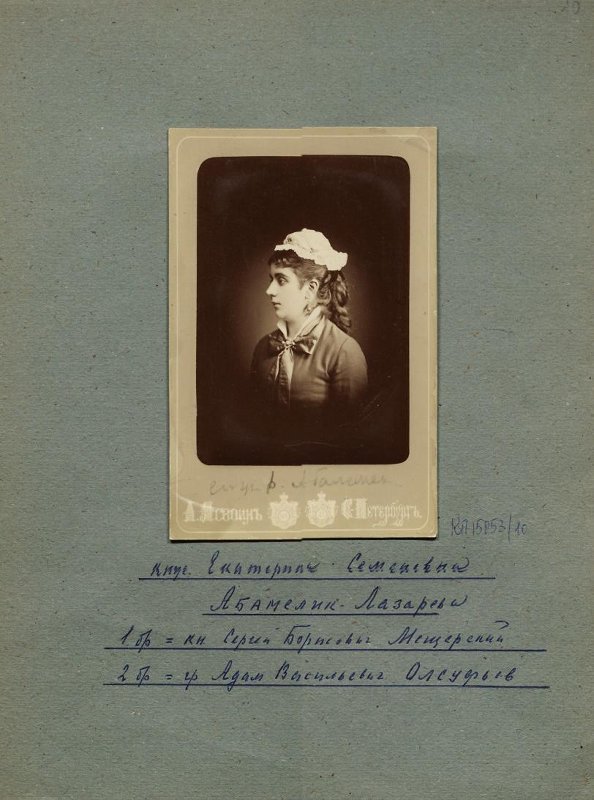 Абамелек
С. Петербургъ.
КП15853/10
княг. Екатерина Семеновна
Абамелик-Лазарева
1 бр = кн Сергей Борисович Мещерский
2 бр = гр Адам Васильевич Олсуфьев